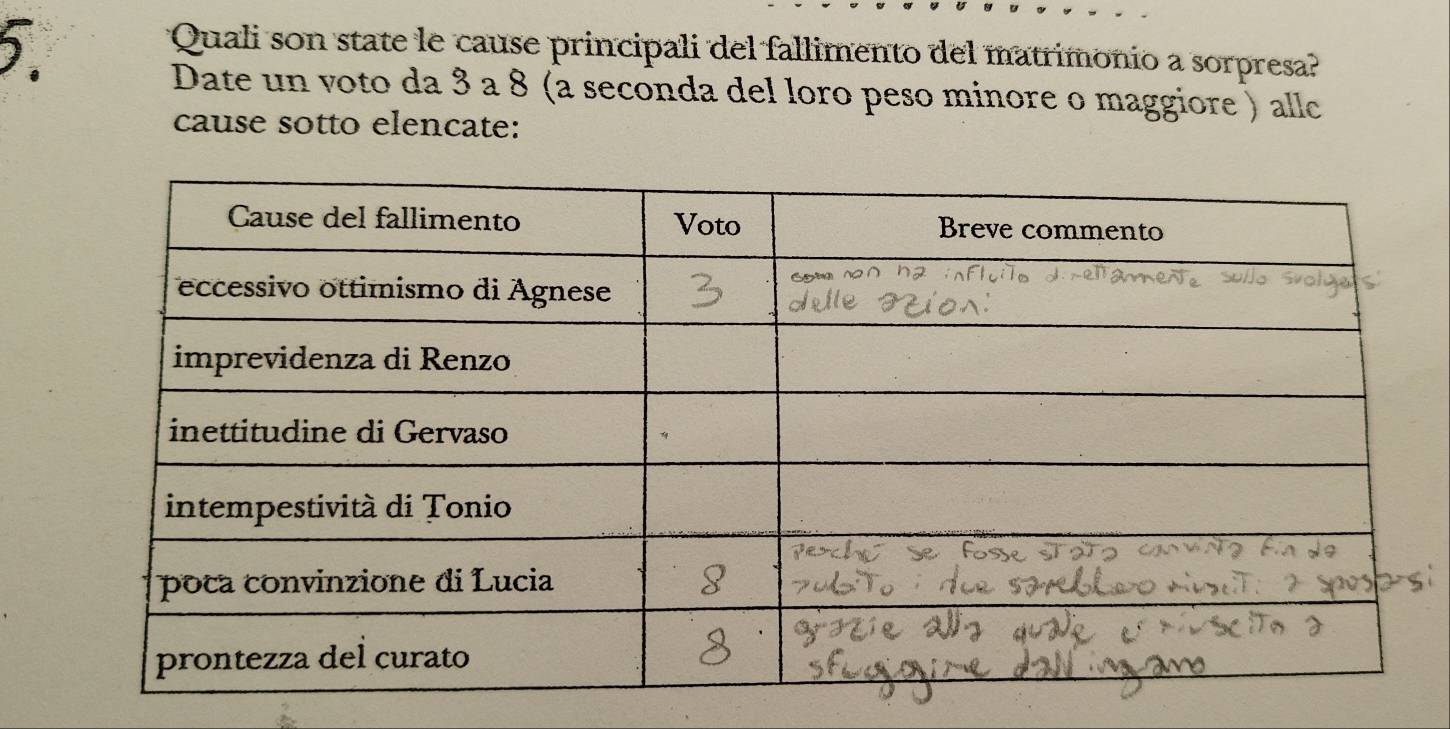 5.
Quali son state le cause principali del fallimento del matrimonio a sorpresa?
Date un voto da 3 a 8 (a seconda del loro peso minore o maggiore ) alle
cause sotto elencate:
Cause del fallimento Voto Breve commento
eccessivo ottimismo di Agnese 3 non ha influito direttamente sullo svolgersi
delle azioni
imprevidenza di Renzo
inettitudine di Gervaso
intempestività di Tonio
poca convinzione di Lucia 8 perché se fosse stata convinta fin da
subito i due sarebbero riusciti a sposarsi
prontezza del curato 8 grazie alla quale è riuscito a
sfuggire dall'ingano